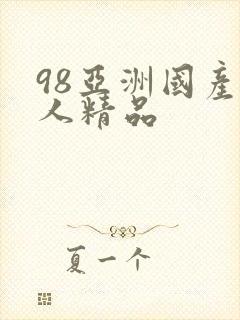 98亞洲國產
人精品
夏一个